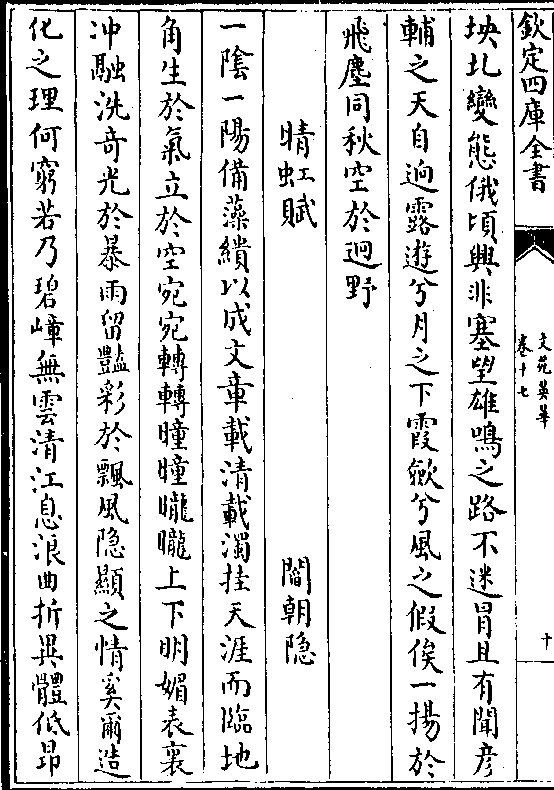 欽定四庫全書
文苑英華
卷十七
十
坱圠變態俄頃興非塞望雄鳴之路不迷冐且有聞彦
輔之天自逈露遊兮月之下霞斂兮風之假俟一揚於
飛塵同秋空於迥野
晴虹賦 閻朝隐
一隂一陽備藻繢以成文章載清載濁挂天涯而臨地
角生於氣立於空宛宛轉轉曈曈曨曨上下明媚表裏
冲融洗竒光於暴雨留豔彩於飄風隐顯之情奚爾造
化之理何窮若乃碧嶂無雲清江息浪曲折異體低昂